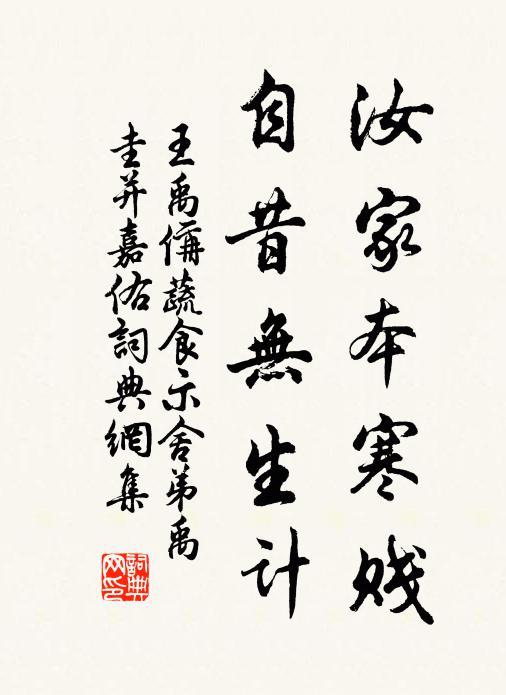 汝家本寒贱
自昔無生计
王禹偁蔬食示舍弟禹
圭并嘉佑詞典網集
詞典
网印